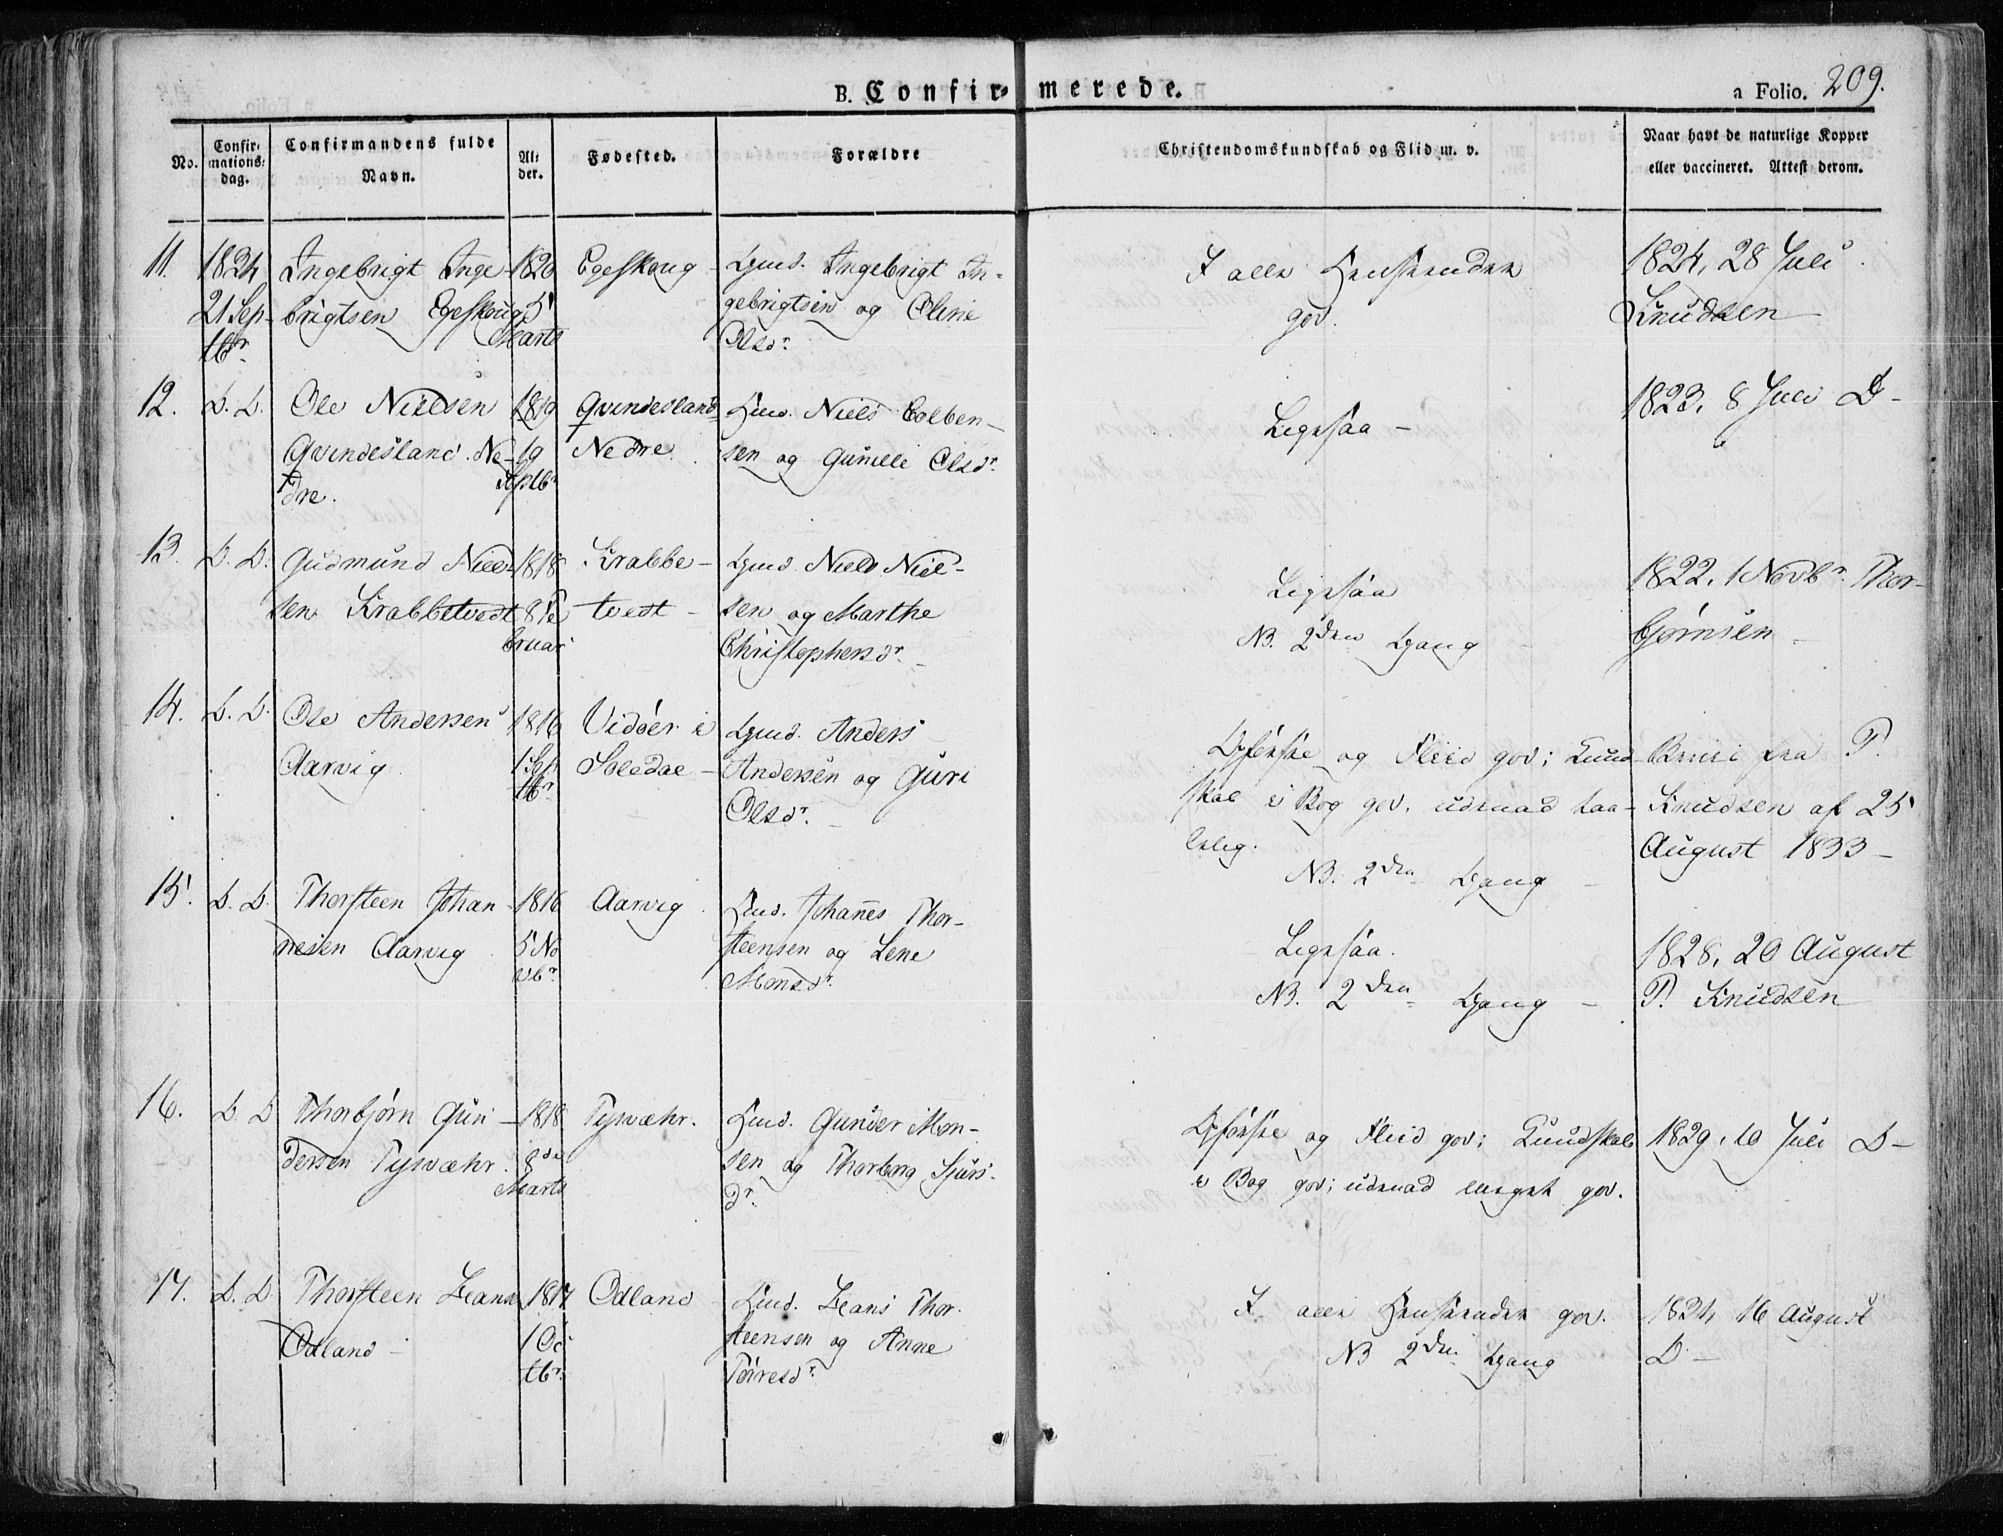 B. Confir- merede.
a Folio. 209.
No.
Confir-
mations-
dag.
Confirmandens fulde
Navn.
Al-
der.
Fødested.
Forældre
Christendomskundskab og Flid m. v.
Naar havt de naturlige Kopper
eller vaccineret. Attest derom.
11.
1834
21 Sep-
tbr
Ingebrigt Inge-
brigtsen Egeskoug
1820
5
Marts
Egeskoug
Gmd. Ingebrigt In-
gebrigtsen og Oline
Olsdr.
I alle Henseender
god.
1824, 28 Juli
Knudsen
12.
D. D.
Ole Nielsen
Qvindesland Ne-
dre.
1819
19
Septbr
Qvindesland
Nedre
Hmd. Niels Colben-
sen og Gunille Olsdr.
Ligesaa -
1823, 8 Juli D-
13.
D. D.
Gudmund Niel-
sen Krabbetvedt
1818
8 Fe
bruar
Krabbe-
tvedt -
Gmd Niels Niel-
sen og Marthe
Christophersdr. -
Ligesaa
NB. 2den Gang
1822, 1 Novbr. Thor-
bjørnsen -
14.
D. D.
Ole Andersen
Aarvig
1816
1 Sep
tbr
Vidøer i
Soledal -
Gmd. Anders
Andersen og Guri
Olsdr. -
Opførsel og Fliid god; Kund-
skab i Bog god, udenad taa-
lelig.
NB. 2den Gang -
Beviis fra P.
Knudsen af 25
August 1833 -
15.
D. D.
Thorsteen Johan-
nesen Aarvig
1816
5 No
vbr.
Aarvig
Hmd. Johannes Thor-
steensen og Lene
Monsdr.
Ligesaa.
NB. 2den Gang -
1828, 20 August
P. Knudsen
16.
D. D
Thorbjørn Gun-
dersen Tysvæhr.
1818
8de
Marts
Tysvæhr.
Hmd. Gunder Mon-
sen og Thorborg Sjurs-
dr.
Opførsel og Fliid god; Kundskab
i Bog god; udenad meget god.
1829, 10 Juli D-
17.
D. D
Thorsteen
Odland -
1817
1 Oc
tbr.
Odland
Hmd. Thor-
steensen og Anne
Tørresdr.
I alle Henseender god.
NB 2den Gang
1824, 16 August
D -